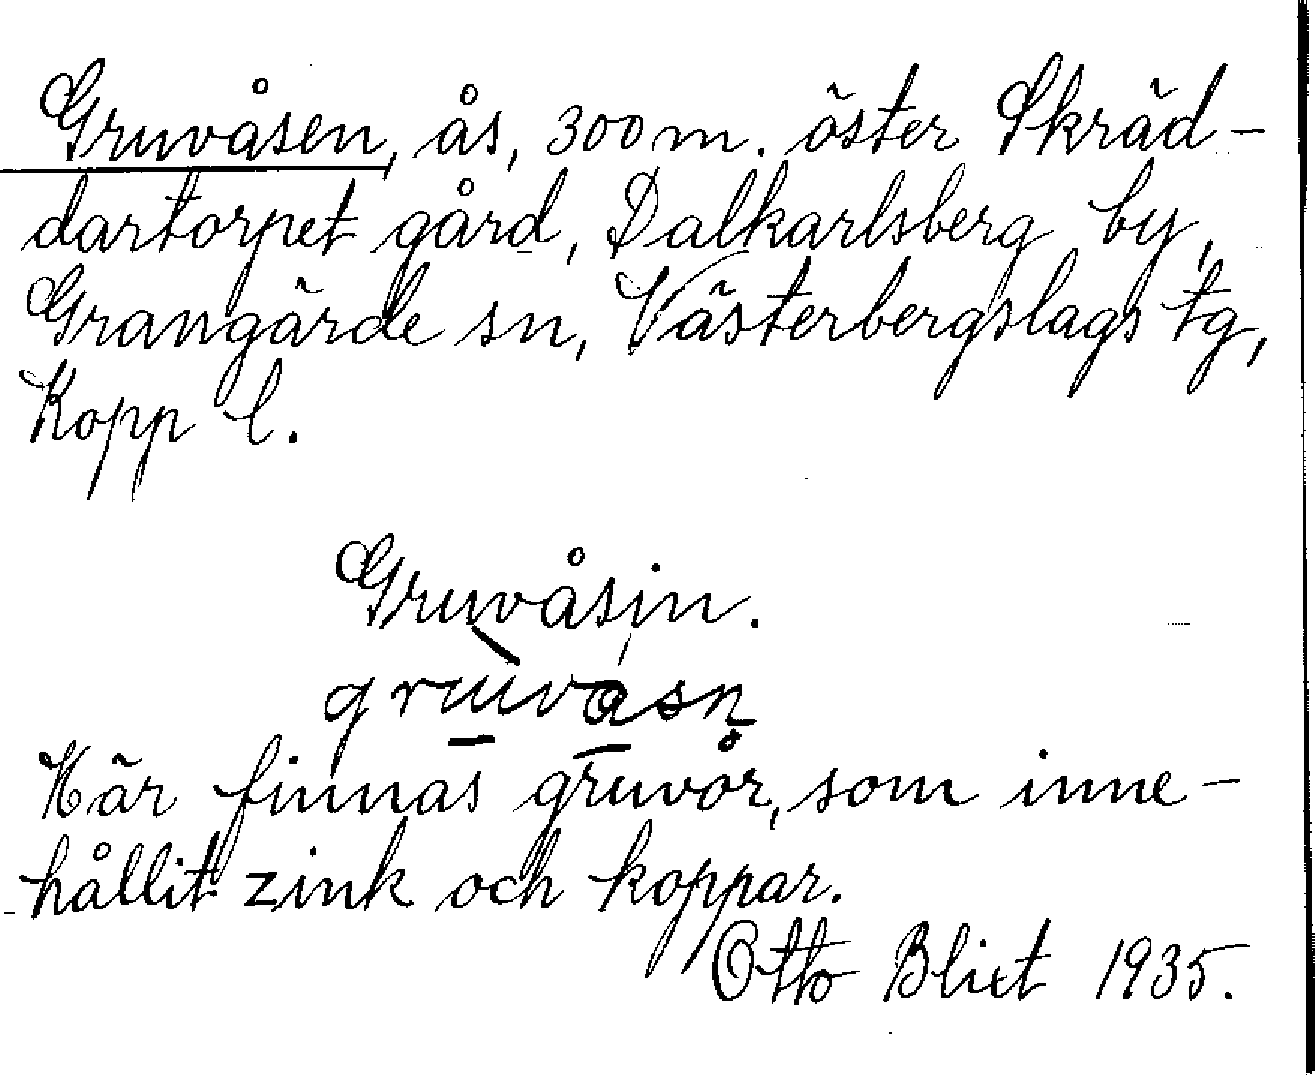 Gruvåsen, ås, 300 m. öster Skräd-
dartorpet gård, Dalkarlsberg by,
Grangärde sn, Västerbergslags tg,
Kopp l.
Gruvåsin.
Här finnas gruvor, som inne-
hållit zink och koppar.
Otto Blixt 1935.